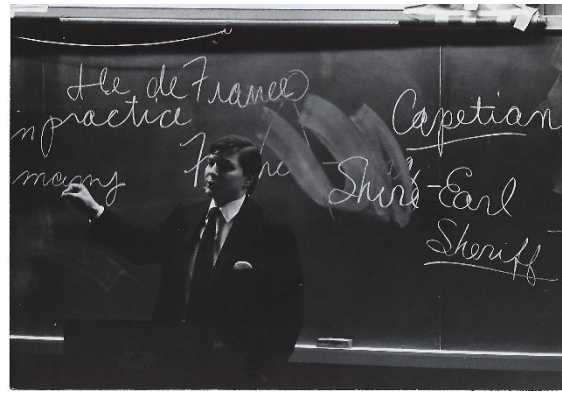 Ile de France
in practice
many
Capetian
Shire-Earl
Sheriff